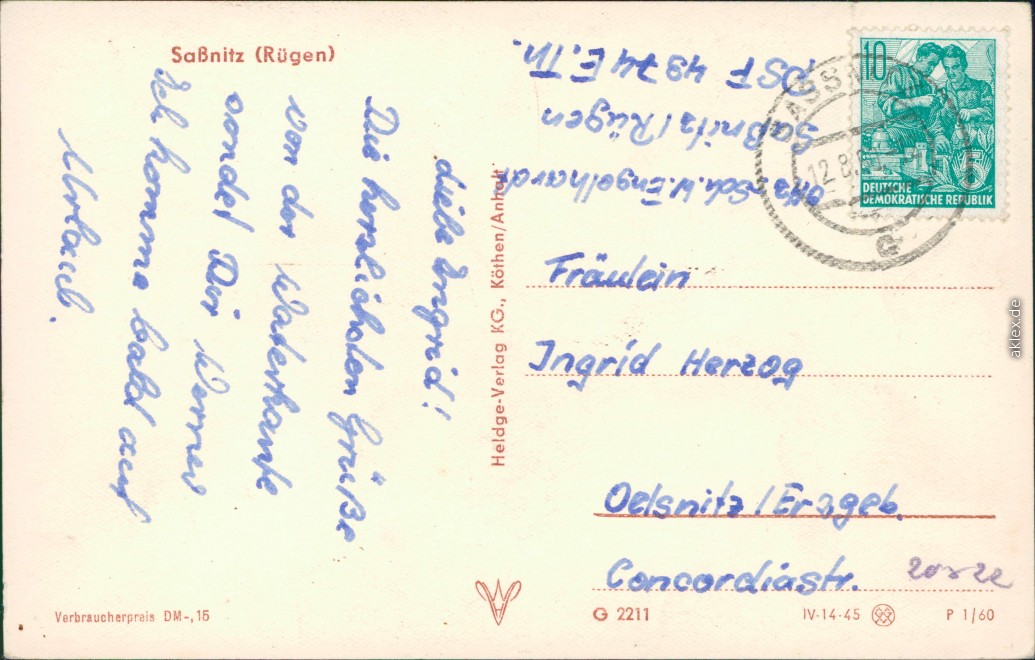 Saßnitz (Rügen)
Liebe Ingrid!
Die herzlichsten Grüße
von der Waterkante
sendet Dir Werner
Ich komme bald auf
Urlaub.
Sch. W. Engelhardt
Saßnitz/Rügen
PSF 4974 E.Th.
10
DEUTSCHE
DEMOKRATISCHE REPUBLIK
12.8.
Fräulein
Ingrid Herzog
Oelsnitz/Erzgeb.
Concordiastr.
Heldge-Verlag KG., Köthen/Anhalt
Verbraucherpreis DM-,15
G 2211
IV-14-45
P 1/60
aklex.de